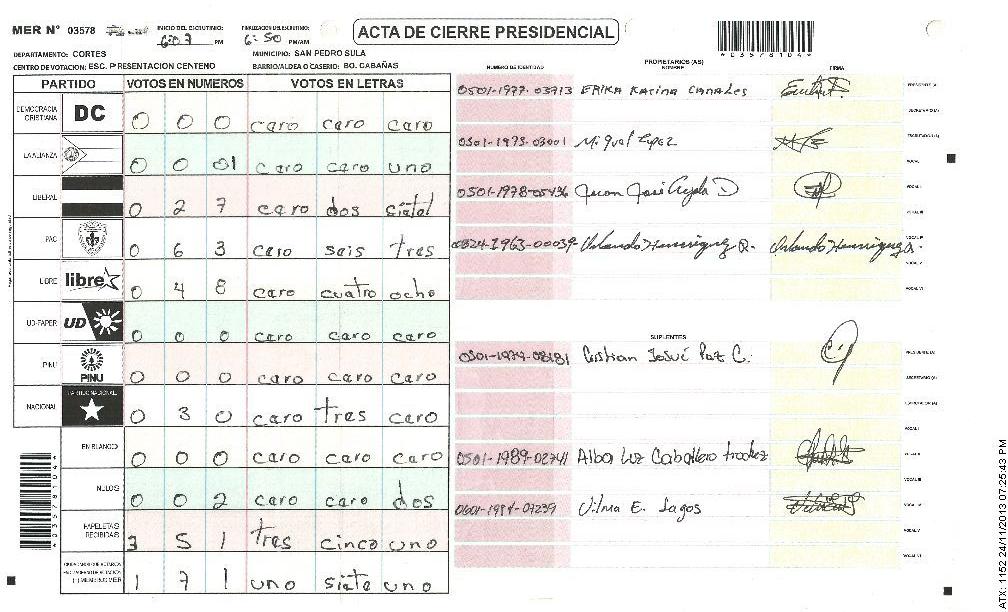 MER Nº 03578 INICIO DEL ESCRUTINIO: 6:07 PM FINALIZACION DEL ESCRUTINIO: 6:50 PM/AM
ACTA DE CIERRE PRESIDENCIAL
*03578104*
DEPARTAMENTO: CORTES MUNICIPIO: SAN PEDRO SULA
CENTRO DE VOTACION: ESC. PRESENTACION CENTENO BARRIO/ALDEA O CASERIO: BO. CABAÑAS
PARTIDO VOTOS EN NUMEROS VOTOS EN LETRAS
DEMOCRACIA CRISTIANA DC 0 0 0 caro caro caro
LA ALIANZA 0 0 01 caro caro uno
LIBERAL 0 2 7 caro dos siete
PAC 0 6 3 caro seis tres
LIBRE libre 0 4 8 caro cuatro ocho
UD-FAPER UD 0 0 0 caro caro caro
PINU PINU 0 0 0 caro caro caro
NACIONAL PARTIDO NACIONAL 0 3 0 caro tres caro
EN BLANCO 0 0 0 caro caro caro
NULOS 0 0 2 caro caro dos
PAPELETAS RECIBIDAS 3 5 1 tres cinco uno
1 7 1 uno siete uno
*03578104*
PROPIETARIOS (AS)
NUMERO DE IDENTIDAD NOMBRE FIRMA
0501-1977-03713 ERIKA Karina Canales PRESIDENTE (A)
SECRETARIO (A)
0501-1973-03001 Miguel Lopez ESCRUTADOR (A)
VOCAL I
0501-1978-05436 Juan José Ayala D VOCAL II
VOCAL III
0824-1963-00039 Orlando Henriquez R. Orlando Henriquez R. VOCAL IV
VOCAL V
VOCAL VI
SUPLENTES
0501-1979-08181 Cristian Josué Paz C. PRESIDENTE (A)
SECRETARIO (A)
ESCRUTADOR (A)
VOCAL I
0501-1989-02741 Alba Luz Caballero VOCAL II
VOCAL III
0601-1984-07239 Vilma E. Lagos VOCAL IV
VOCAL V
VOCAL VI
ATX: 1152 24/11/2013 07:25:43 PM